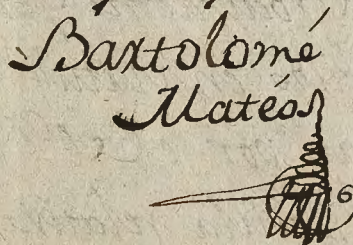 Bartolomé
Matéos
6